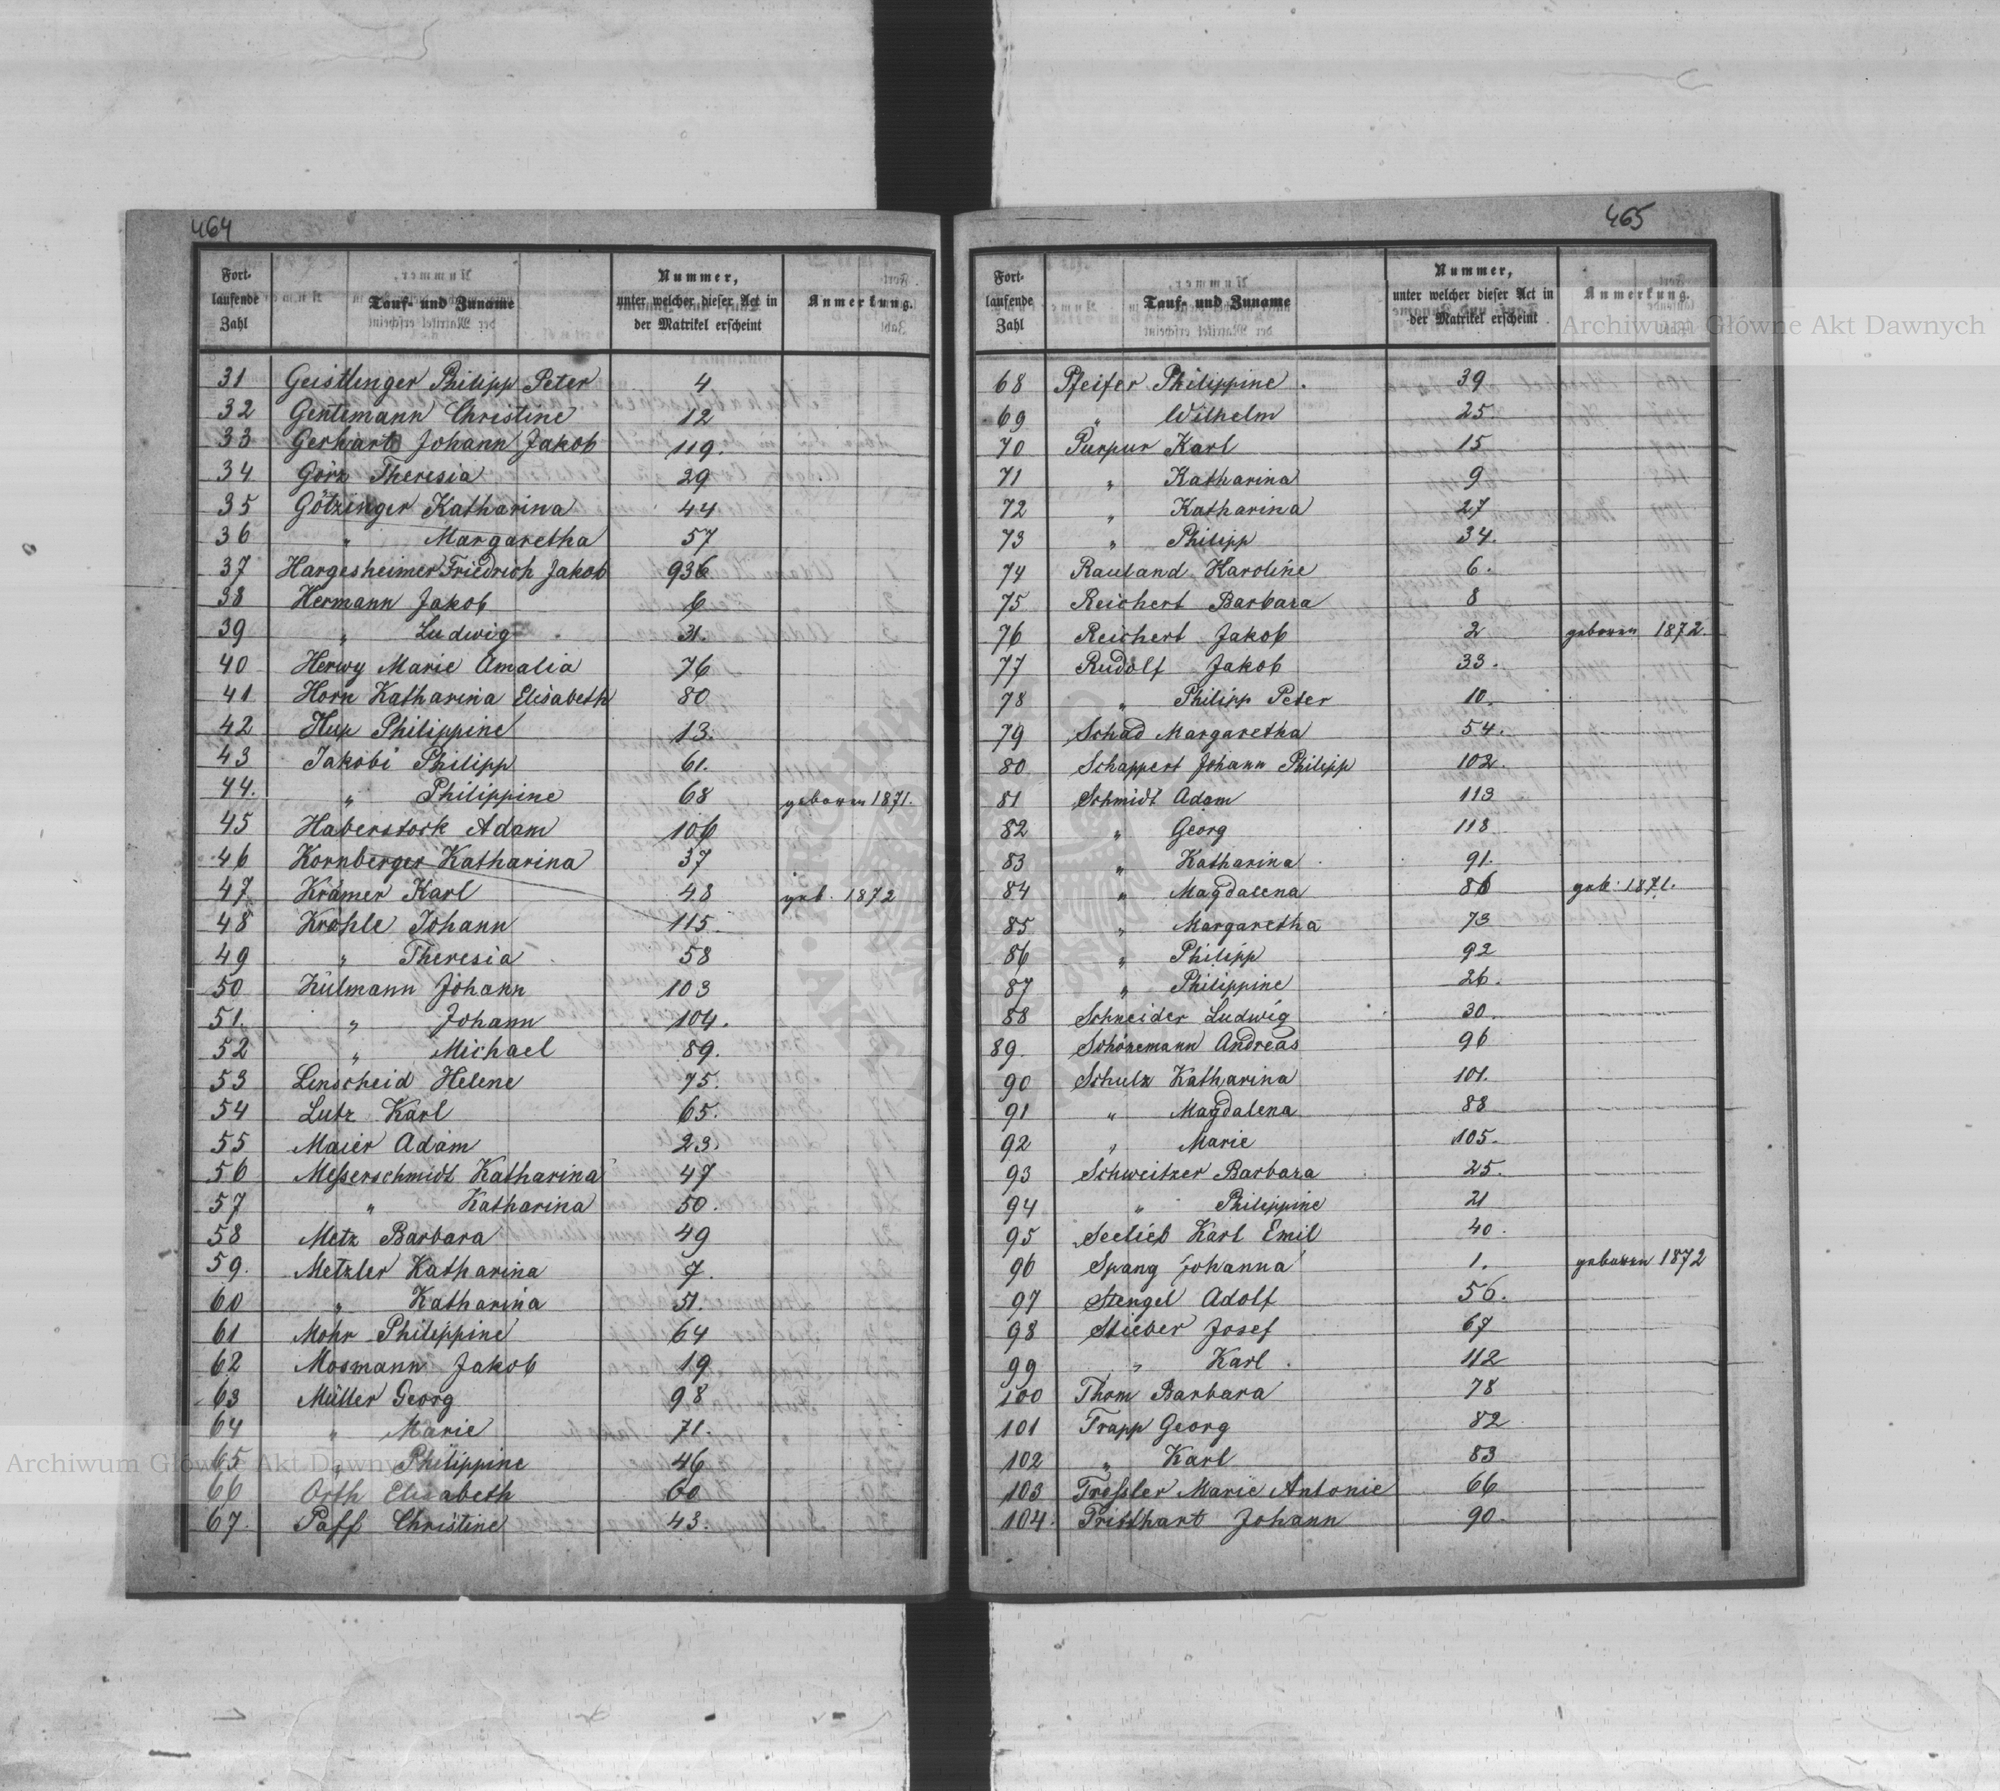 464
Fort-laufende Zahl | Tauf- und Zuname | Nummer, unter welcher dieser Act in der Matrikel erscheint | Anmerkung.
31 Geistlinger Philipp Peter 4
32 Gentemann Christine 12
33 Gerhart Johann Jakob 119.
34 Görz Theresia 29
35 Götzinger Katharina 44
36 " Margaretha 57
37 Hargesheimer Friedrich Jakob 936
38 Hermann Jakob 6
39 " Ludwig 31.
40 Herwy Marie Amalia 76
41 Horn Katharina Elisabeth 80
42 Hux Philippine 13.
43 Jakobi Philipp 61.
44. " Philippine 68 geboren 1871.
45 Haberstock Adam 106
46 Kornberger Katharina 37
47. Krämer Karl 48 geb. 1872
48 Kröhle Johann 115.
49 " Theresia 58
50 Külmann Johann 103
51. " Johann 104.
52 " Michael 89.
53 Linscheid Helene 75.
54 Lutz Karl 65.
55 Maier Adam 23.
56 Meſserschmidt Katharina 47
57 " Katharina 50.
58 Metz Barbara 49
59. Metzler Katharina 7.
60 " Katharina 51.
61 Mohr Philippine 64
62 Mosmann Jakob 19
63 Müller Georg 98
64 " Marie 71.
65 " Philippine 46
66 Orth Elisabeth 60
67. Paff Christine 43.
465
Fort-laufende Zahl | Tauf- und Zuname | Nummer, unter welcher dieser Act in der Matrikel erscheint | Anmerkung.
68 Pfeifer Philippine 39
69 " Wilhelm 25
70 Purpur Karl 15
71 " Katharina 9
72 " Katharina 27
73 " Philipp 34.
74 Rauland Karoline 6.
75 Reichert Barbara 8
76 Reichert Jakob 2 geboren 1872.
77 Rudolf Jakob 33.
78 " Philipp Peter 10.
79 Schad Margaretha 54.
80 Schappert Johann Philipp 102.
81 Schmidt Adam 113
82 " Georg 118
83 " Katharina 91.
84 " Magdalena 86 geb. 1871.
85 " Margaretha 73
86 " Philipp 92
87 " Philippine 26.
88 Schneider Ludwig 30.
89. Schönemann Andreas 96
90 Schulz Katharina 101.
91 " Magdalena 88
92 " Marie 105.
93 Schweitzer Barbara 25.
94 " Philippine 21
95 Seelieb Karl Emil 40.
96 Spang Johanna 1. geboren 1872
97 Stengel Adolf 56.
98 Stieber Josef 67
99 " Karl 112
100 Thom Barbara 78
101 Trapp Georg 82
102 " Karl 83
103 Treſsler Marie Antonie 66
104. Johann 90.
Archiwum Główne Akt Dawnych
Archiwum Główne Akt Dawnych